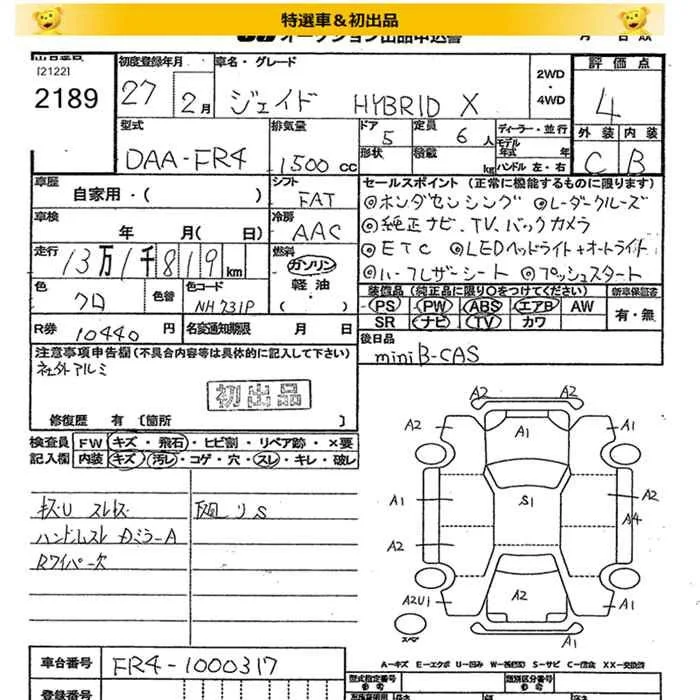 特選車＆初出品
オークション出品申込書
[2122]
2189
初度登録年月
27 2月
車名・グレード
ジェイド HYBRID X
2WD
・
4WD
評価点
4
外装 内装
C B
型式
DAA-FR4
排気量
1500 cc
ドア
5
形状
定員
6 人
積載
kg
ディーラー・並行
モデル
年式 年
ハンドル 左・右
車歴
自家用・( )
シフト
FAT
車検
年 月( 日)
冷房
AAC
走行
13万1千819km
燃料
ガソリン
軽油
・( )
色
クロ
色替
カラーコード
NH731P
R券 10440 円
名変通知期限 月 日
セールスポイント (正常に機能するものに限ります)
◎ホンダセンシング ◎レーダークルーズ
◎純正ナビ、TV、バックカメラ
◎ETC ◎LEDヘッドライト+オートライト
◎ハーフレザーシート ◎プッシュスタート
装備品(純正品に限り○をつけてください)
PS PW ABS エアB AW
SR ナビ TV カワ
新車保証書
有・無
後日品
miniB-CAS
注意事項申告欄(不具合内容等は具体的に記入して下さい)
社外アルミ
初出品
修復歴 有 [箇所 ]
検査員
記入欄
FW キズ・飛石・ヒビ割・リペア跡・×要
内装 キズ・汚レ・コゲ・穴・スレ・キレ・破レ
キズU スレキズ
ハンドルスレ DミラーA
Rワイパー欠
A2
A2
A2
A1
A1
A1
S1
A2
A4
A2
A2U1
A2
A1
A1
スペア
A－キズ E－エクボ U－凹み S－サビ C－腐食 XX－交換済
車台番号
FR4-1000317
登録番号
型式指定番号
類別区分番号